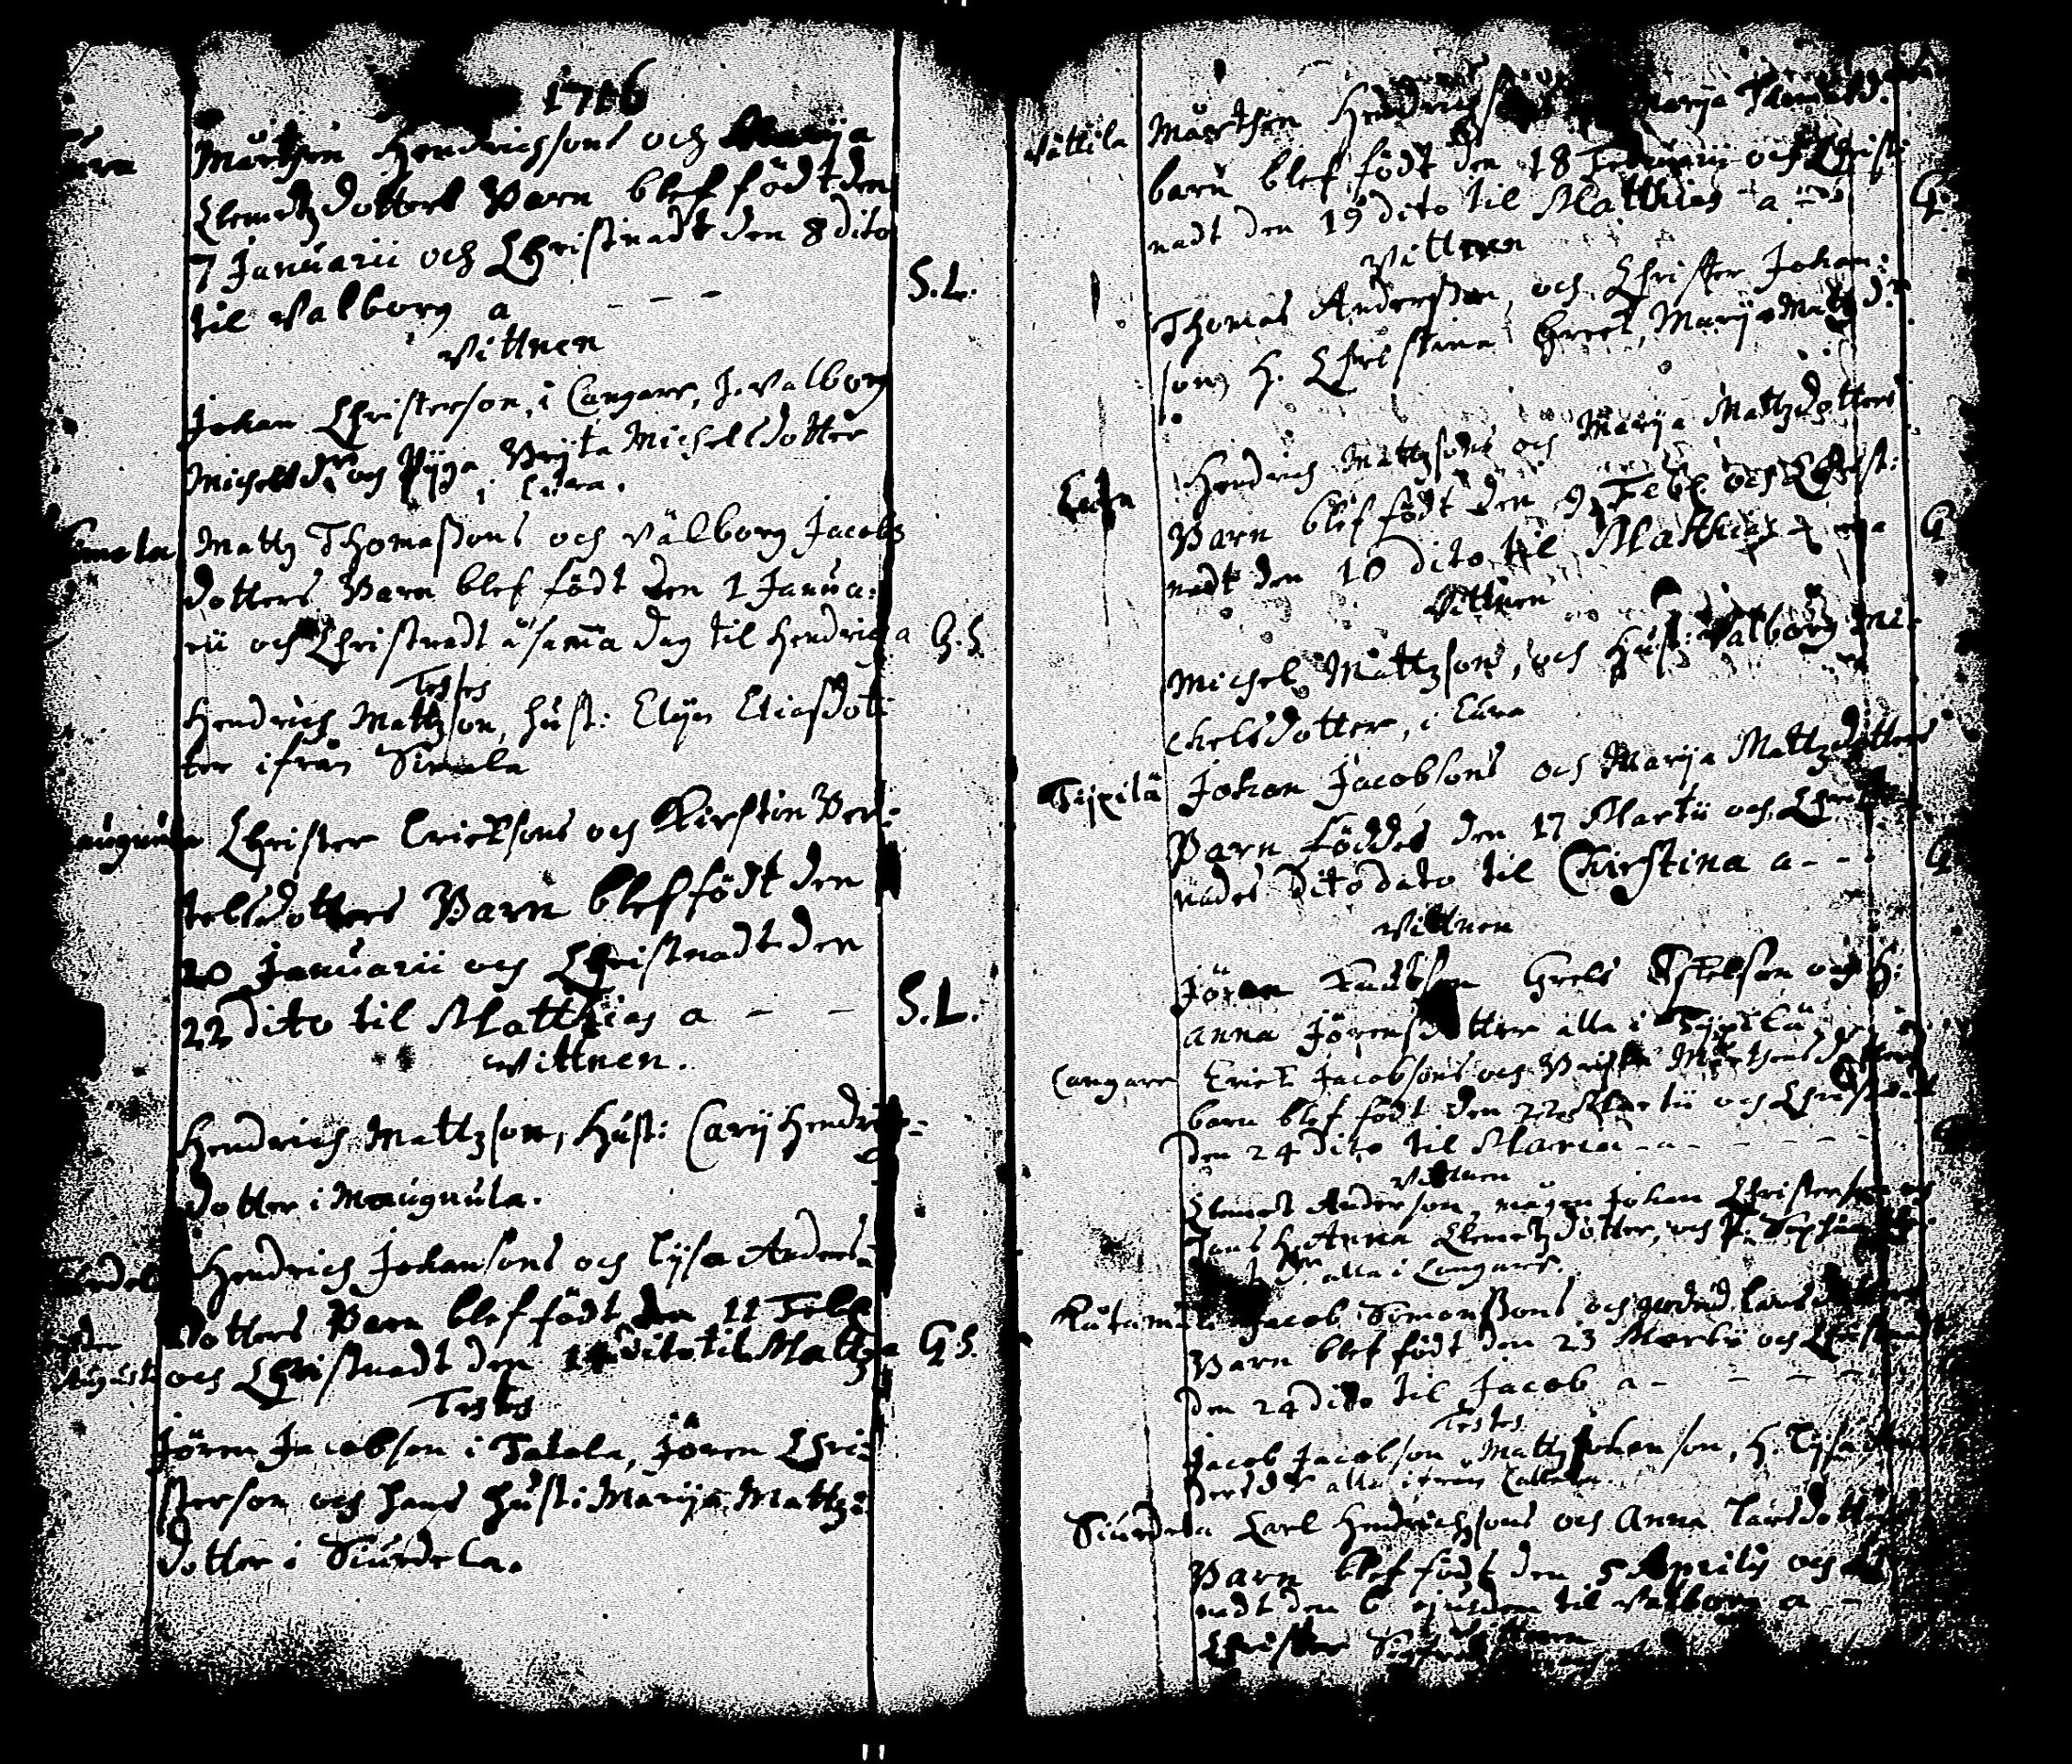 1716
Mårthen Hendrichssons och Marija
Clemetzdotters Barn blef födt den
7 Januarii och Christnadt den 8 dito
til Valborg a - - - S.L.
Vittnen
Johan Christerson, i Cangare, h. Valborg
Michelsdr och Pijga Brijta Michelsdotter
i Eura.
Mattz Thomassons och Välborg Jacobs
dotters Barn blef födt den 1 Janua:
rii och Christnadt samma dag til Hendrich a G.S.
Testes
Hendrich Mattzson, hust: Elijn Eliasdot:
ter ifrån
Maugnula Christer Erichsons och Kirstin Ber:
telsdotters Barn blef födt den
20 Januarii och Christnadt den
22 dito til Matthias a - - S.L.
Vittnen.
Hendrich Mattzson, Hust: Carij Hendrichs=
dotter i Maugnula.
Hendrich Johansons och Lijsa Anders=
dotters Barn blef födt den 11 Feb
och Christnadt den 14 dito til Mattz a G.S.
Testes
Jören Jacobson i Tatala, Jören Chri=
sterson och hans hust: Marija Mattz:
dotter i Siurdela.
Vättila Mårthen Hendrichs Marija Thomasd.
barn blef födt den 18 Februarii och Christ
nadt den 19 dito til Matthias a G.
Vittnen
Thomas Andersson, och Christer Johan:
son, H. Christina Marija Mattzdr
Eura Hendrich Mattzsons och Marija Mattzdotters
Barn blef födt den 9 Feb. och Christ:
nadt den 10 dito til Matthias a G
Vittnen
Michel Mattzson, och Hust: Valborg Mi-
chelsdotter, i Eura
Tijpilä Johan Jacobsons och Marija Mattzdotters
Barn föddes den 17 Martii och Christ
nades dito dato til Christina a - - - G
Vittnen
Jöran Grels och H:
Anna Jörensdotter alla i Tijpilä
Cangare Erich Jacobsons och Brijta Mårthensdotters
barn blef födt den 22 Martii och Christnadt
den 24 dito til Maria - a - - - - -
Vittnen
Clemet Anderson, mågen Johan Christerson och
hans H. Anna Clemetzdotter, och P.
alla i Cangare.
Jacob Simonssons och Lars
Barn blef födt den 23 Martii och Christnadt
den 24 dito til Jacob a - - - -
Testes
Jacob Jacobson, Mattz Johanson, H. Lijsa An
dersdr alla
Siurdela Carl Hendrichsons och Anna Larsdotters
Barn blef födt den 5 Aprilis och
nadt den 6 ejusdem til Valborg a - -
Christer